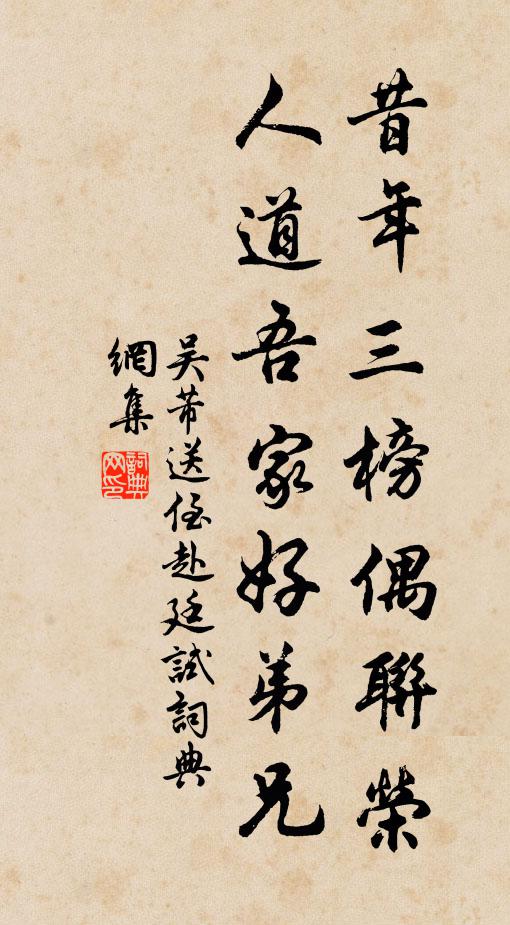 昔年三榜偶聯榮
人道吾家好弟兄
吴芾送侄赴廷試詞典
網集
詞典网印